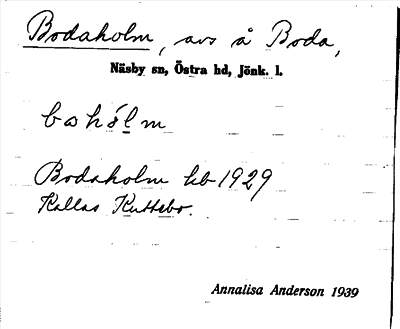 Bodaholm, avs å Boda,
Näsby sn, Östra hd, Jönk. l.
bωhólm
Bodaholm kb 1929
Kallas Kuttebo.
Annalisa Anderson 1939